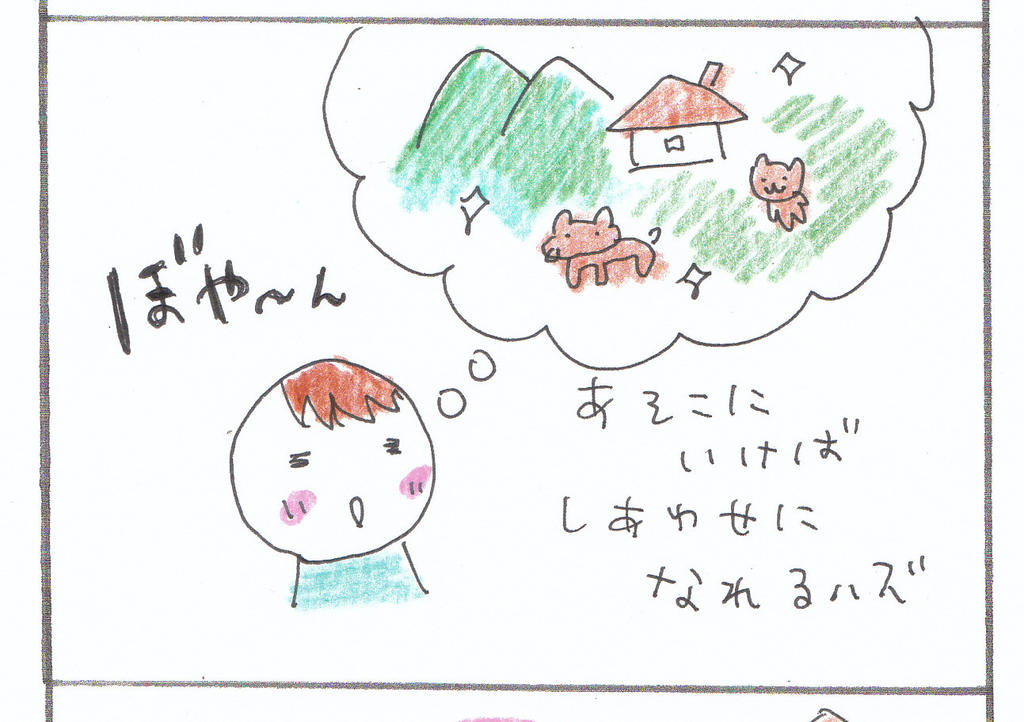 ぼや〜ん
あそこに
いけば
しあわせに
なれるハズ